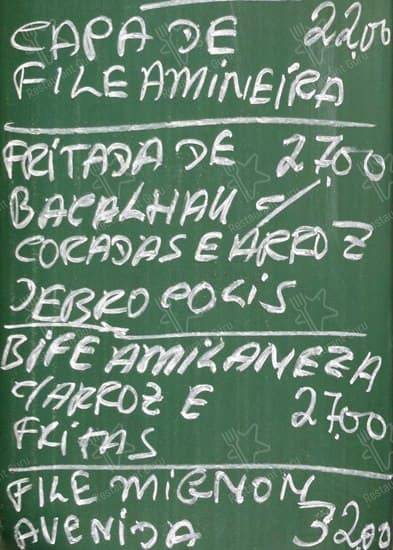 CAPA DE 22,00
FILE A MINEIRA
FRITADA DE 27,00
BACALHAU C/
CORADAS E ARROZ
DEBROPOLIS
BIFE A MILANEZA
C/ARROZ E 27,00
FRITAS
FILE MIGNON
AVENIDA 32,00